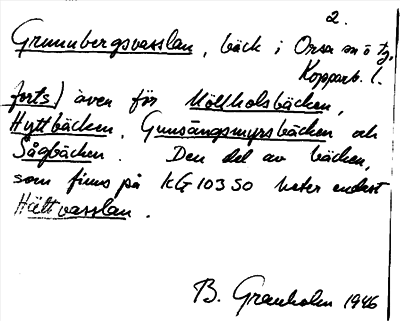 2.
Grunubergsvasslan, bäck i Orsa sn o tg,
Kopparb. l.
forts) även för Köllholsbäcken,
Hyttbäcken, Gunsängsmyrsbäcken och
Sågbäcken. Den del av bäcken,
som finns på KG 10350 heter endast
Hättvasslan.
B. Granholm 1946